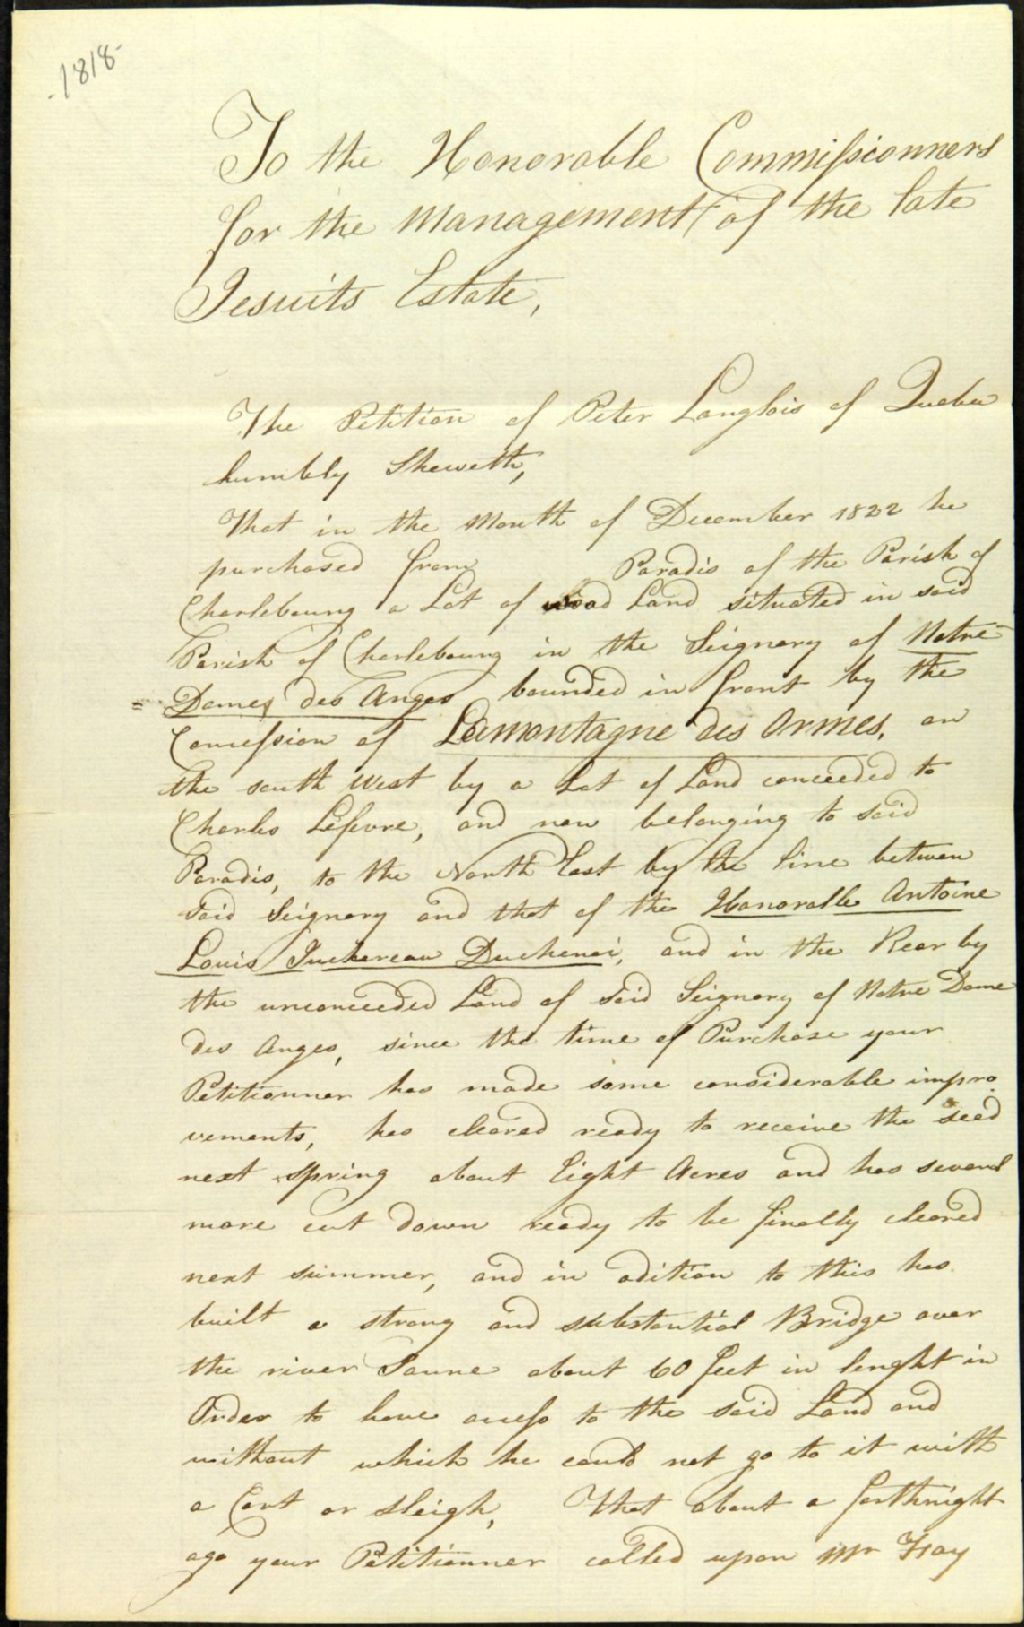 1818-
To the Honorable Commissionners
for the Management of the late
Jesuits Estate,
The Petition of Peter Langlois of Quebec
humbly Sheweth,
That in the Month of December 1822 he
purchased from Paradis of the Parish of
Charlebourg a Lot of Land situated in said
Parish of Charlebourg in the Seignory of Notre
Dames des Anges bounded in front by the
Concession of Lamontagne des Ormes, on
the south West by a Lot of Land conceeded to
Charles Lefevre, and now belonging to said
Paradis, to the North East by the line between
Said Seignory and that of the Honorable Antoine
Louis Juchereau Duchenai, and in the Rear by
the unconceeded Land of Said Seignory of Notre Dame
des Anges, since the time of Purchase your
Petitionner has made some considerable impro-
vements, has cleared ready to receive the seed
next spring about Eight Acres and has several
more cut down ready to be finally cleared
next summer, and in adition to this has
built a strong and substantial Bridge over
the river Jaune about 60 feet in lenght in
Order to have access to the said Land and
without which he could not go to it with
a Cart or sleigh, That about a forthnight
ago your Petitionner called upon Mr